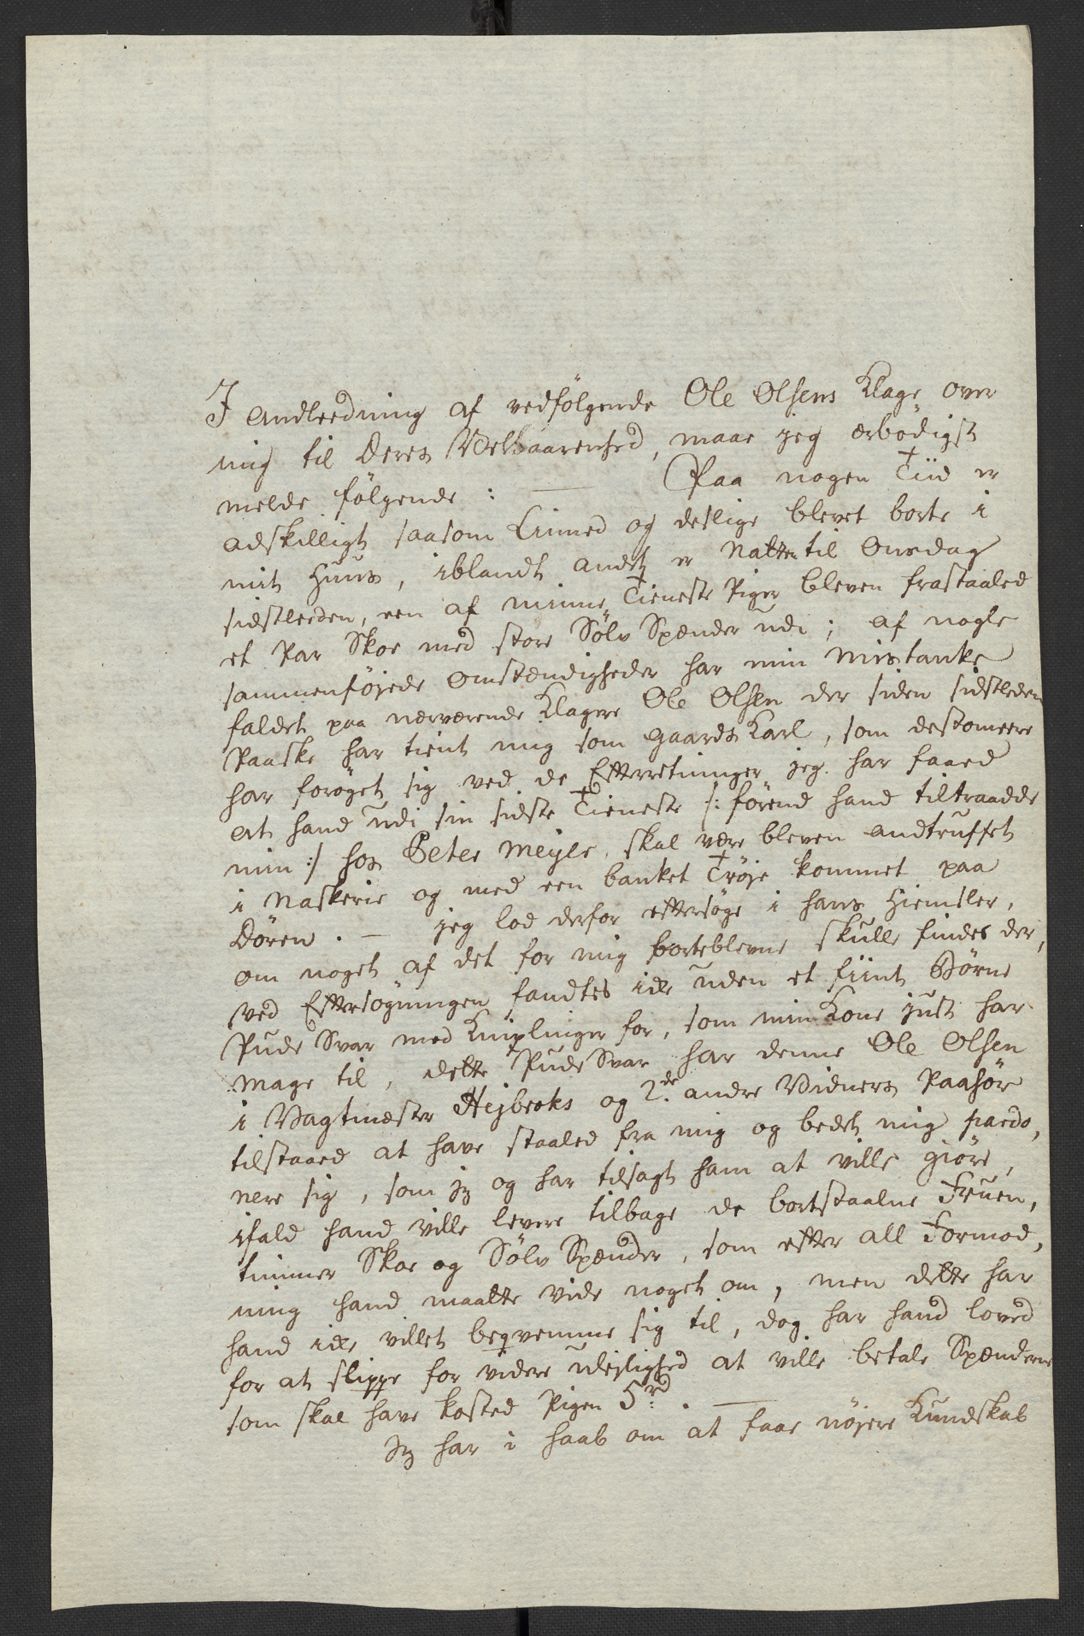 I Andleedning af vedfølgende Ole Olsens Klage over
mig til Deres Velbaarenhed, maae jeg ærbødigst
melde følgende: — Paa nogen Tiid er
adskilligt saasom Linned og deslige blevet borte i
mit Huus, iblandt andet er Natten til Onsdag
sidstleeden, een af minne Tieneste Piger bleven frastaaled
et Par Skoe med store Sølv Spænder udi; af nogle
sammenføjede Omstændigheder har min Mistanke
faldet paa nærværende Klagere Ole Olsen der siden sidstleden
Paaske har tient mig som Gaards Karl, som destomeere
har forøget sig ved de Efterretninger jeg har faaed
at hand udi sin sidste Tieneste /: førend hand tiltraadde
min :/ hos Peter Meyer, skal være bleven andtruffet
i Naskerie og med een banket Trøje kommet paa
Døren. — jeg lod derfor eftersøge i hans Giemsler,
om noget af det for mig borteblevne skulle findes der,
ved Eftersøgningen fandtes icke uden et fiint Børne
Pude Svar med Kniplinger for, som min Kone just har
Mage til, dette Pude Svar har denne Ole Olsen
i Vagtmester Hejbroks og 2de andre Vidners Paahør
tilstaaed at have staaled fra mig og bedet mig pardo,
nere sig, som jeg og har tilsagt ham at ville giøre,
ifald hand ville levere tilbage de bortstaalne Fruen,
timmer Skoe og Sølv Spænder, som efter all Formod,
ning hand maatte vide noget om, men dette har
hand icke villet beqvemme sig til, dog har hand loved
for at slippe for videre Ulejlighed at ville betale Spænderne
som skal have kosted Pigen 5rd. —
Jeg har i Haab om at faae nøjere Kundskab